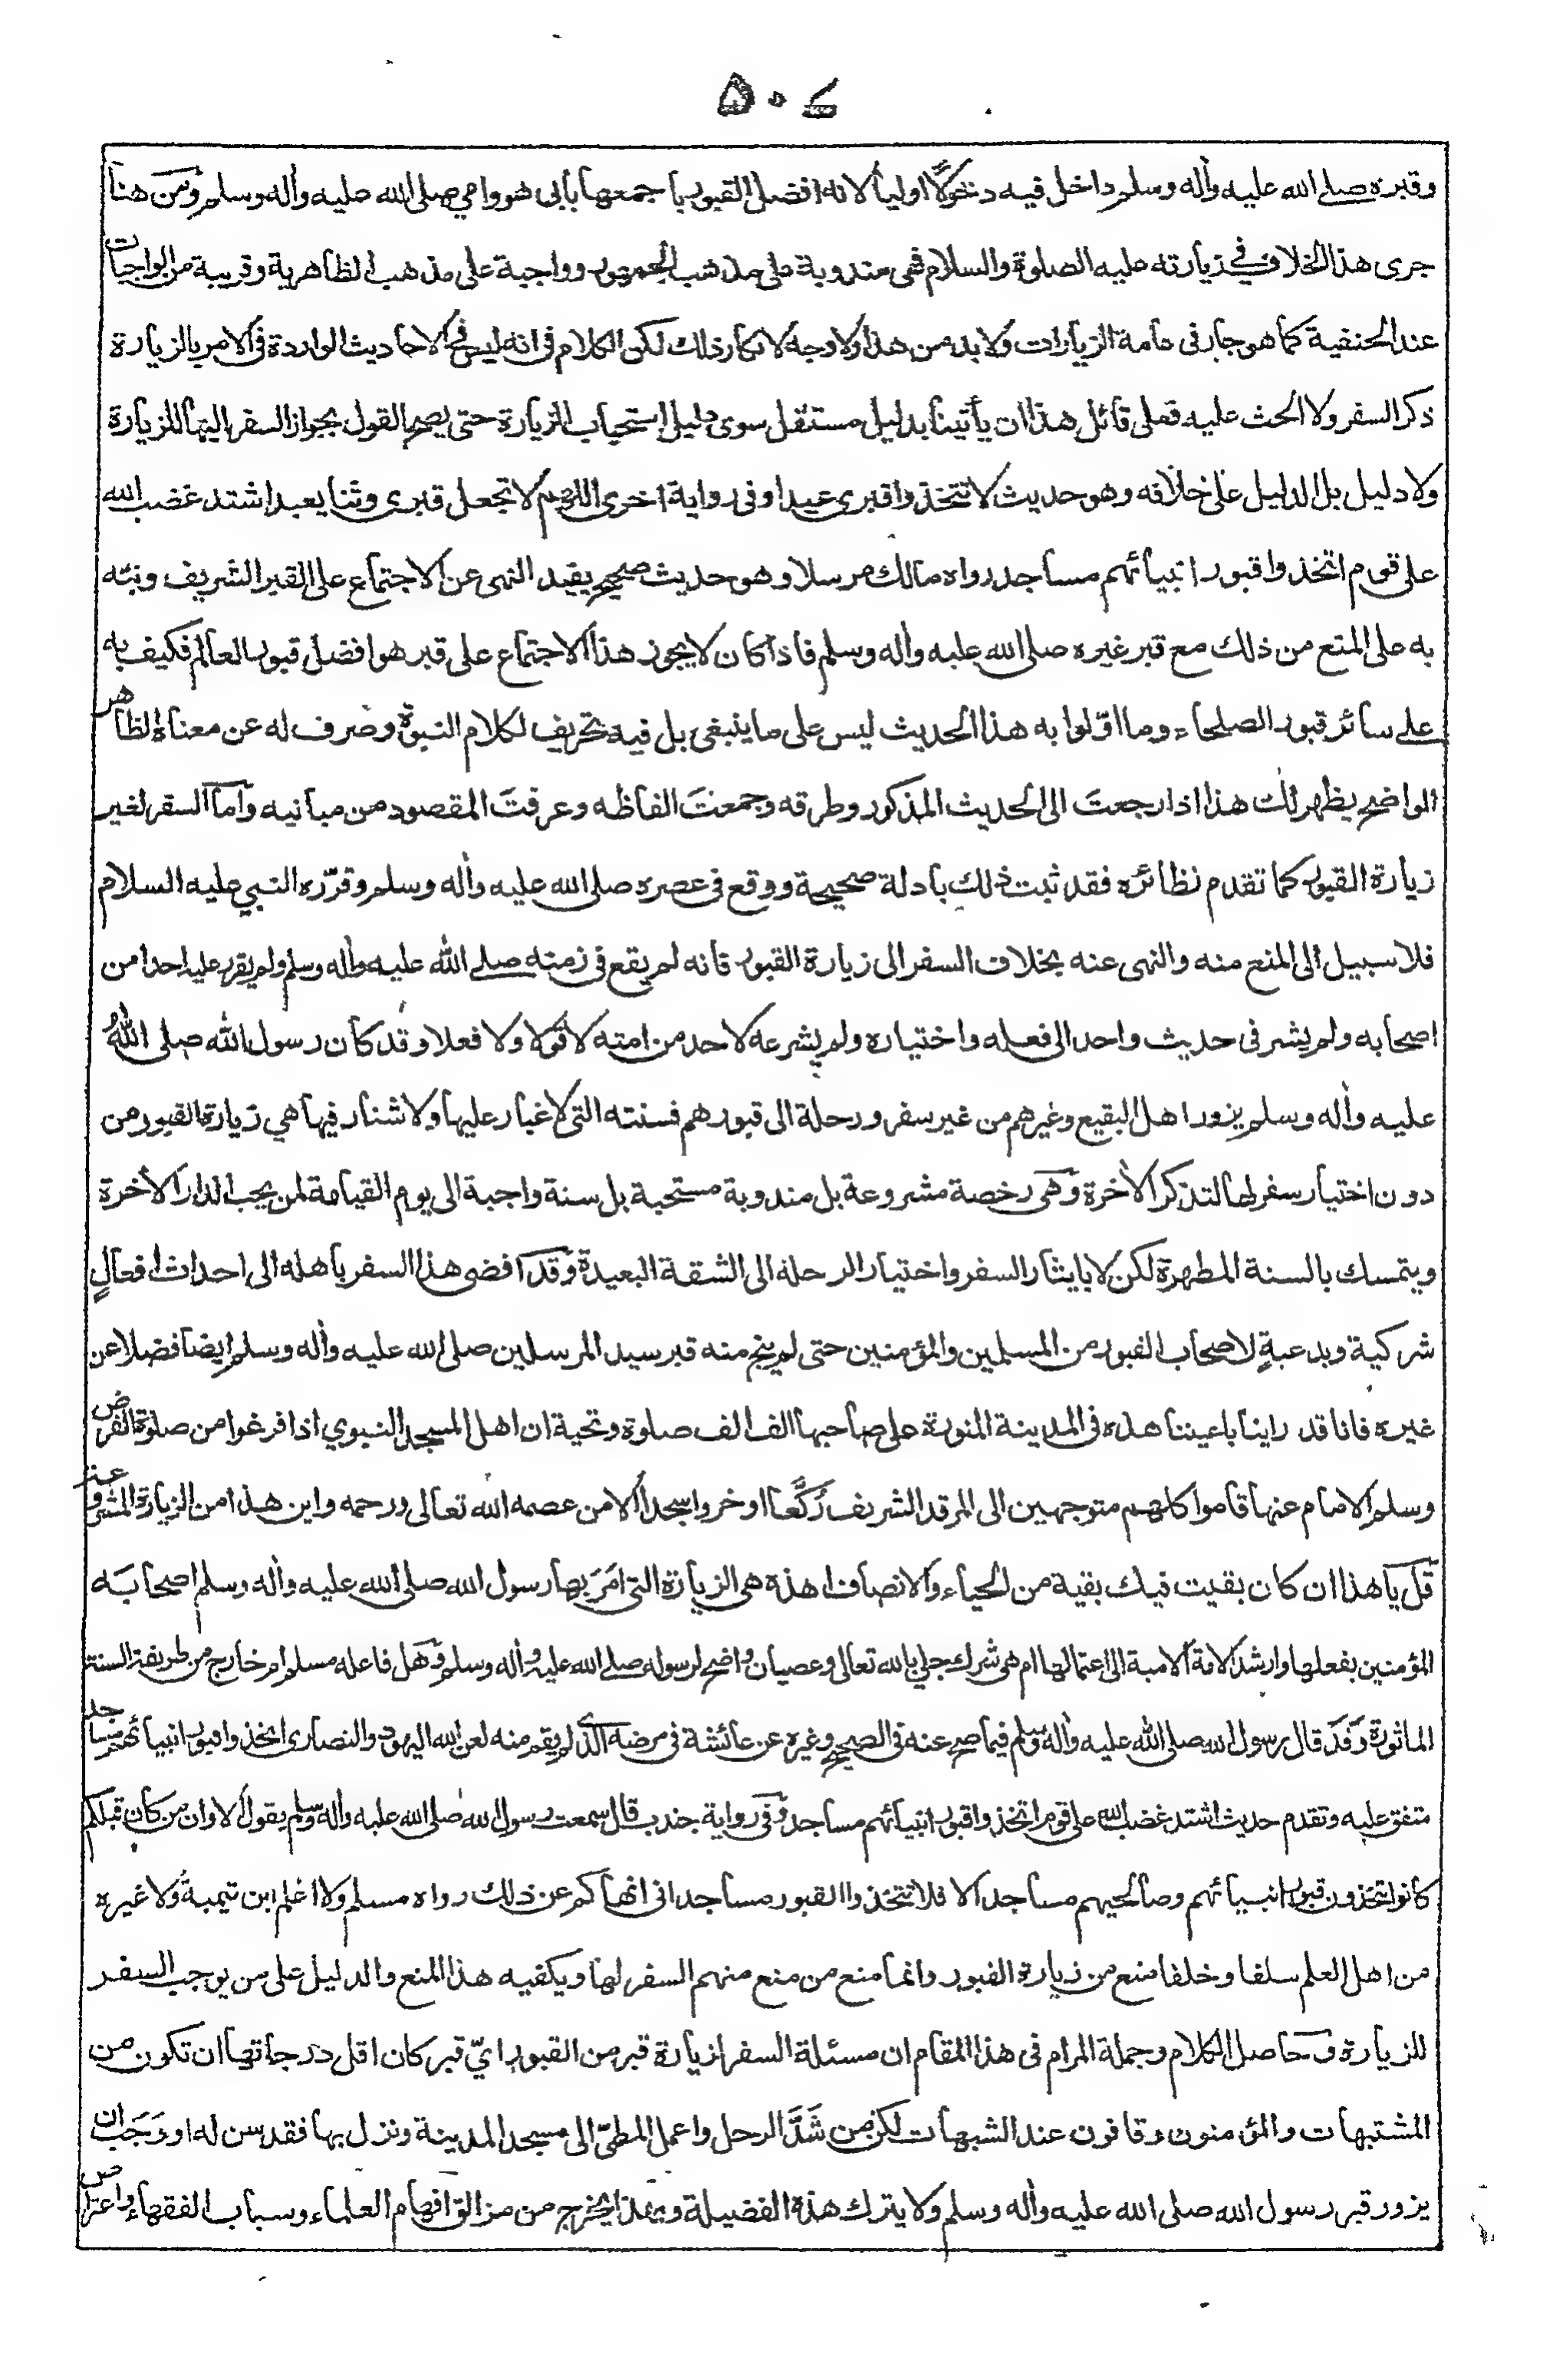 ٥٠٤
وقبره صلے الله عليه وأله وسلم داخل فيه دخولًا اوليا لانه افضل القبور باجمعها بأبى هو وامي صلى الله عليه وأله وسلم ومن هنا
جرى هذا الخلاف في زيارته عليه الصلوة والسلام فهى مندوبة على مذهب الجمهور وواجبة على مذهب الظاهرية وقريبة من الواجبات
عند الحنفية كما هو جار فى عامة الزيارات ولا بد من هذا ولا وجه لانكار ذلك لكن الكلام فى انه ليس فى الاحاديث الواردة فى الامر بالزيارة
ذكر السفر ولا الحث عليه فعلى قائل هذا ان يأتينا بدليل مستقل سوى دليل استحباب الزيارة حتى يصح القول بجواز السفر اليها للزيارة
ولا دليل بل الدليل على خلافه وهو حديث لا تتخذوا قبرى عيدا وفى رواية اخرى اللهم لا تجعل قبرى وثنا يعبد اشتد غضب الله
على قوم اتخذوا قبور انبيائهم مساجد رواه مالك مرسلا وهو حديث صحيح يفيد النهى عن الاجتماع على القبر الشريف ونبّه
به على المنع من ذلك مع قبر غيره صلى الله عليه وأله وسلم فاذا كان لا يجوز هذا الاجتماع على قبر هو افضل قبور العالم فكيف به
على سائر قبور الصلحاء وما اوّلوا به هذا الحديث ليس على ما ينبغى بل فيه تحريف لكلام النبوة وصرف له عن معناه الظاهر
الواضح يظهر لك هذا اذا رجعتَ الى الحديث المذكور وطرقه وجمعتَ الفاظه وعرفتَ المقصود من مبانيه وأما السفر لغير
زيارة القبور كما تقدم نظائره فقد ثبت ذلك بادلة صحيحة ووقع فى عصره صلى الله عليه وأله وسلم وقرّره النبي عليه السلام
فلا سبيل الى المنع منه والنهى عنه بخلاف السفر الى زيارة القبور فانه لم يقع فى زمنه صلے الله عليه وأله وسلم ولم يقرر عليه احدا من
اصحابه ولم يشر فى حديث واحد الى فعله واختياره ولم يشرعه لاحد من امته لا قولا ولا فعلا وقد كان رسول الله صلى الله
عليه وأله وسلم يزور اهل البقيع وغيرهم من غير سفر ورحلة الى قبورهم فسنته التى لا غبار عليها ولا شنار فيها هي زيارة القبور من
دون اختيار سفر لها لتذكر الأخرة وهى رخصة مشروعة بل مندوبة مستحبة بل سنة واجبة الى يوم القيامة لمن يحب الدار الأخرة
ويتمسك بالسنة المطهرة لكن لا بايثار السفر واختيار الرحلة الى الشقة البعيدة وقد افضى هذا السفر باهله الى احداث افعالٍ
شركية وبدعيةٍ لاصحاب القبور من المسلمين والمؤمنين حتى لم ينج منه قبر سيد المرسلين صلى الله عليه وأله وسلم ايضا فضلا عن
غيره فانا قد راينا باعيننا هذه فى المدينة المنورة على صاحبها الف الف صلوة وتحية ان اهل المسجد النبوي اذا فرغوا من صلوة الفرض
وسلم الامام عنها قاموا كلهم متوجهين الى المرقد الشريف رُكَّعا او خروا سجدا الا من عصمه الله تعالى ورحمه واين هذا من الزيارة المشروعة
قل يا هذا ان كان بقيت فيك بقية من الحياء والانصاف اهذه هى الزيارة التى امَرَ بها رسول الله صلى الله عليه وأله وسلم اصحابَه
المؤمنين بفعلها وارشد الامة الامية الى اعتمالها ام هى شرك جلي بالله تعالى وعصيان واضح لرسوله صلے الله عليه وأله وسلم وهل فاعله مسلم ام خارج من طريقة السنة
الماثورة وقد قال رسول الله صلى الله عليه وأله وسلم فيما صح عنه فى الصحيح وغيره عن عائشة فى مرضه الذى لم يقم منه لعن الله اليهود والنصارى اتخذوا قبور انبيائهم مساجد
متفق عليه وتقدم حديث اشتد غضب الله على قوم اتخذوا قبور انبيائهم مساجد وفى رواية جندب قال سمعت رسول الله صلى الله عليه وأله وسلم يقول ألا وان من كان قبلكم
كانوا يتخذون قبور انبيائهم وصالحيهم مساجد الا فلا تتخذوا القبور مساجد انى انهاكم عن ذلك رواه مسلم ولا اعلم ابن تيمية ولا غيره
من اهل العلم سلفا وخلفا منع من زيارة القبور وانما منع من منع منهم السفر لها ويكفيه هذا المنع والدليل على من يوجب السفر
للزيارة وحاصل الكلام وجملة المرام فى هذا المقام ان مسئلة السفر لزيارة قبر من القبور ايّ قبر كان اقل درجاتها ان تكون من
المشتبهات والمؤمنون وقافون عند الشبهات لكن من شَدَّ الرحل واعمل المطيّ الى مسجد المدينة ونزل بها فقد سن له او وَجَبَ ان
يزور قبر رسول الله صلى الله عليه وأله وسلم ولا يترك هذه الفضيلة وبهذا يخرج من مزالق افهام العلماء وسباب الفقهاء واعتراض